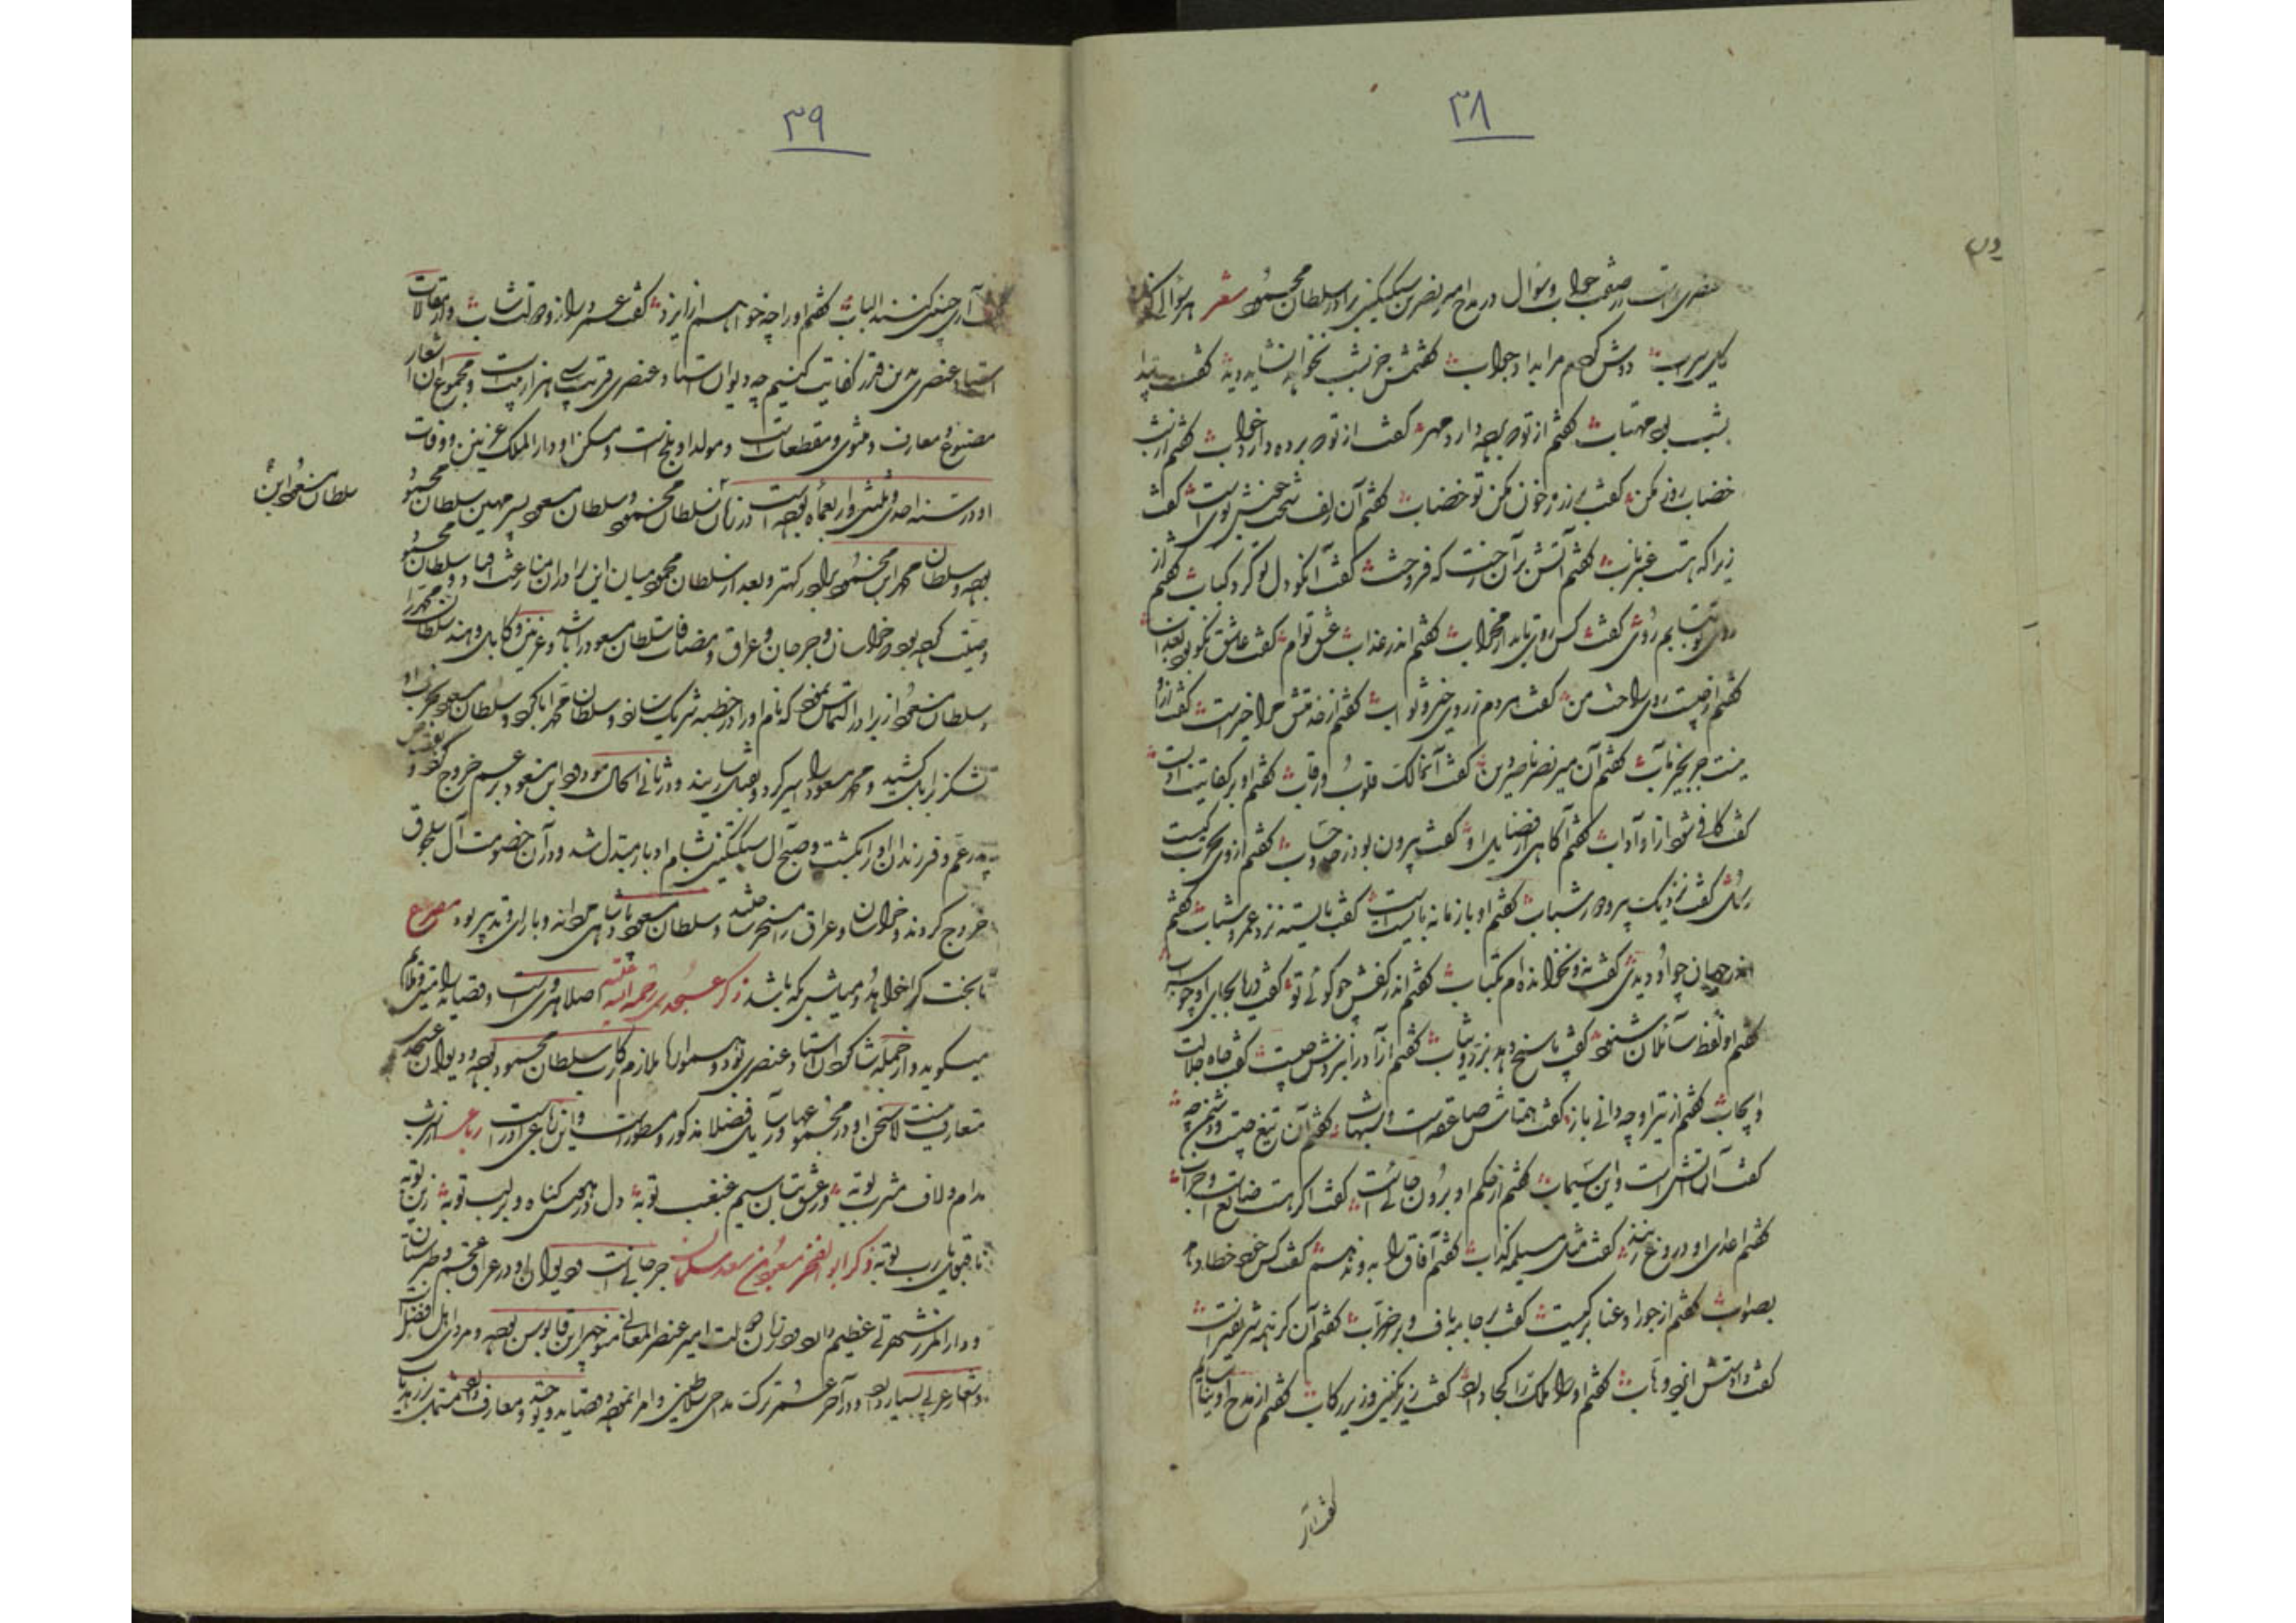 ۳۸
عنصری راست در صفت جواب و سؤال در مدح امیر نصر بن سبکتکین برادر سلطان محمود شعر هر سؤالی کز
دوش کردم مرا بداد جواب گفتمش جز بشب نخواهد شاید دید گفت پیدا
بشب بود مهتاب گفتم از تو که برده دارد مهر گفت از تو که برده دارد خواب گفتم از شب
خضاب روز مکن گفت بر زر ز خون مکن تو خضاب گفتم آن زلف سخت خوش بوی است گفت
زیرا که هست عنبر ناب گفتم آتش بر آن رخت که فروخت گفت آنکو دل تو کرد کباب گفتم از
روی تو نتابم روی گفت کس روی تابد از محراب گفتم اندر عذاب عشق توام گفت عاشق نکو بود بعذاب
گفتم از چیست روی راحت من گفت مردم ز روی خیر و ثواب گفتم از خدمتش مرا خیر است گفت ازو
نیست جز بخیر مآب گفتم آن میر نصر ناصر دین گفت آن مالک قلوب و رقاب گفتم او بر کفایت ادب است
گفت کافی شود ازو آداب گفتم آگاهی از فضایل او گفت بیرون بود ز حد و حساب گفتم از وی بحرب کیست
رسول گفت نزدیک تیر و دور شهاب گفتم او با زمانه بایسته است گفت بایسته تر ز عمر و شباب گفتم
اندر جهان چو او دیدی گفت نه و نخوانده‌ام بکتاب گفتم اندر کفش چه گوئی تو گفت دریا بجای او چو سراب
گفتم او لفظ سائلان شنود گفت پاسخ دهد بزر و ثیاب گفتم آزاده را بنزدش چیست گفت جاه و جلالت
و ایجاب گفتم از تیر او چه دانی باز گفت همتاش صاعقه است و شهاب گفتم آن تیغ چیست و دشمن چه
گفت آن آتش است و این سیماب گفتم از حکم او برون جائی است گفت اگر هست ضایع است و خراب
گفتم اعدای او دروغ زنند گفت مثل مسیلمه کذاب گفتم آفاق را بدو ندهم گفت کس خود خطا دهد
بصواب گفتم از جود او عنا بر کیست گفت بر جامه باف و بر ضراب گفتم آن کز همه شریفتر است
گفت دادستش ایزد وهاب گفتم او را ملک ترا کجا دارد گفت زیر نگین و زیر رکاب گفتم از مدح او نیاسایم
گفت آر
۳۹
آری چنین کنند الباب گفتم او را چه خواهم از ایزد گفت عمر دراز و دولت شاب و از مقالات
استاد عنصری بدین قدر کفایت کنیم چه دیوان استاد عنصری قریب سی هزار بیت است و مجموع آن اشعار
مصنوع و معارف و مثنوی و مقطعات است و مولد او بلخ است و مسکن او دار الملک غزنین و وفات
او در سنه احدی و ثلثین و اربعمائه بوده است در زمان سلطان محمود و سلطان مسعود پسر مهین سلطان محمود
سلطان مسعود ابن
بوده و سلطان محمد ابن محمود برادر کهتر و بعد از سلطان محمود میان این برادران منازعت افتاد و سلطان محمود
وصیت کرده بود خراسان و جرجان و عراق و مضافات سلطان مسعود را باشد و غزنین و کابل و هند سلطان محمد را
و سلطان مسعود از برادر التماس نمود که نام او را در خطبه شریک سازد و سلطان محمد ابا کرد و سلطان مسعود بحرب او
لشکر بزابل کشید و محمد مسعود را اسیر کرد و بقتل رسانید و در ثانی الحال مودود ابن مسعود بر عم خروج کرد و
پدر عم و فرزندان او را بکشت و صبح آل سبکتکین بشام ادبار مبدل شد و در آن خصومت آل سلجوق
خروج کردند و خراسان و عراق را مسخر ساختند و سلطان مسعود پادشاهی مردانه و با رای و تدبیر بود مصرع
تا بخت کرا خواهد و میلش بکه باشد ذکر عسجدی رحمة الله علیه اصلا هروی است و قصاید را متین و ملایم
میگوید و از جمله شاگردان استاد عنصری بوده و همواره ملازم رکاب سلطان محمود بوده و دیوان عسجدی
متعارف نیست لا سخن او در مجموعها و رسایل فضلا مذکور و مسطور است و این رباعی او راست رباعی از شرب
مدام و لاف مشرب توبه وز عشق بتان سیم غبغب توبه دل در هوس گناه و بر لب توبه زین توبه
نادرست یا رب توبه ذکر ابو الفخر مسعود بن سعد سلمان جرجانی است دیوان او در عراق عجم و طبرستان
و دار المرز شهرتی عظیم دارد در زمان دولت امیر عنصر المعالی منوچهر ابن قابوس بوده و مردی اهل فضل است
و اشعار عربی بسیار دارد و در آخر عمر ترک مداحی سلاطین و امرا نموده و قصاید در توحید و معارف دارد مشتمل بر زهدیات